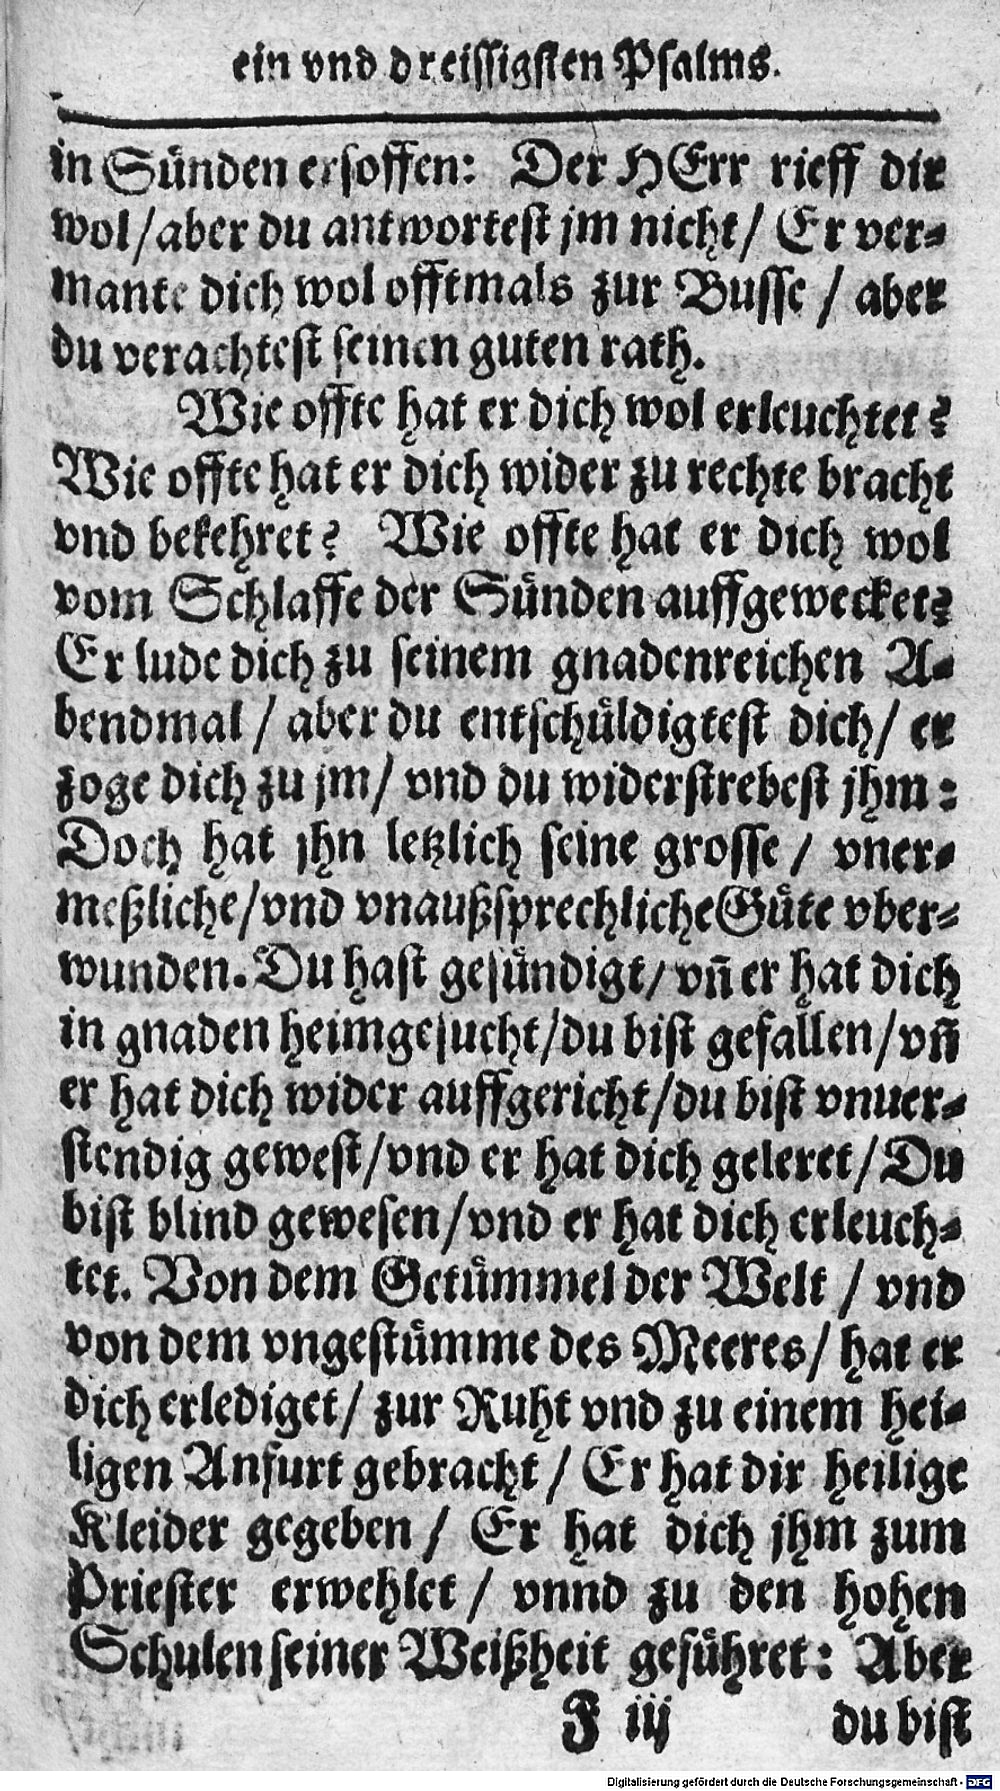 ein vnd dreissigsten Psalms.
in Sünden ersoffen: Der HErr rieff dir
wol/aber du antwortest jm nicht/ Er ver-
mante dich wol offtmals zur Busse / aber
du verachtest seinen guten rath.
Wie offte hat er dich wol erleuchtet?
Wie offte hat er dich wider zu rechte bracht
vnd bekehret? Wie offte hat er dich wol
vom Schlaffe der Sünden auffgewecket?
Er lude dich zu seinem gnadenreichen A-
bendmal / aber du entschüldigtest dich/ er
zoge dich zu jm/ vnd du widerstrebest jhm:
Doch hat jhn letzlich seine grosse / vner-
meßliche/vnd vnaußsprechliche Güte vber-
wunden. Du hast gesündigt/ vñ er hat dich
in gnaden heimgesucht/du bist gefallen/vñ
er hat dich wider auffgericht/du bist vnuer-
stendig gewest/vnd er hat dich geleret/Du
bist blind gewesen/vnd er hat dich erleuch-
tet. Von dem Getümmel der Welt / vnd
von dem vngestümme des Meeres/ hat er
dich erlediget/ zur Ruht vnd zu einem hei-
ligen Anfurt gebracht / Er hat dir heilige
Kleider gegeben / Er hat dich jhm zum
Priester erwehlet / vnnd zu den hohen
Schulen seiner Weißheit geführet: Aber
F iij du bist
Digitalisierung gefördert durch die Deutsche Forschungsgemeinschaft - DFG